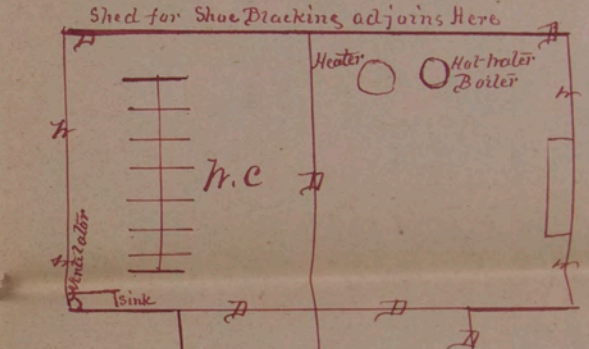 Shed for Shoe Blacking adjoins Here
D
D
Heater
Hot-water
Boiler
W
W
W.C
D
Ventilator
W
W
sink
D
D
D